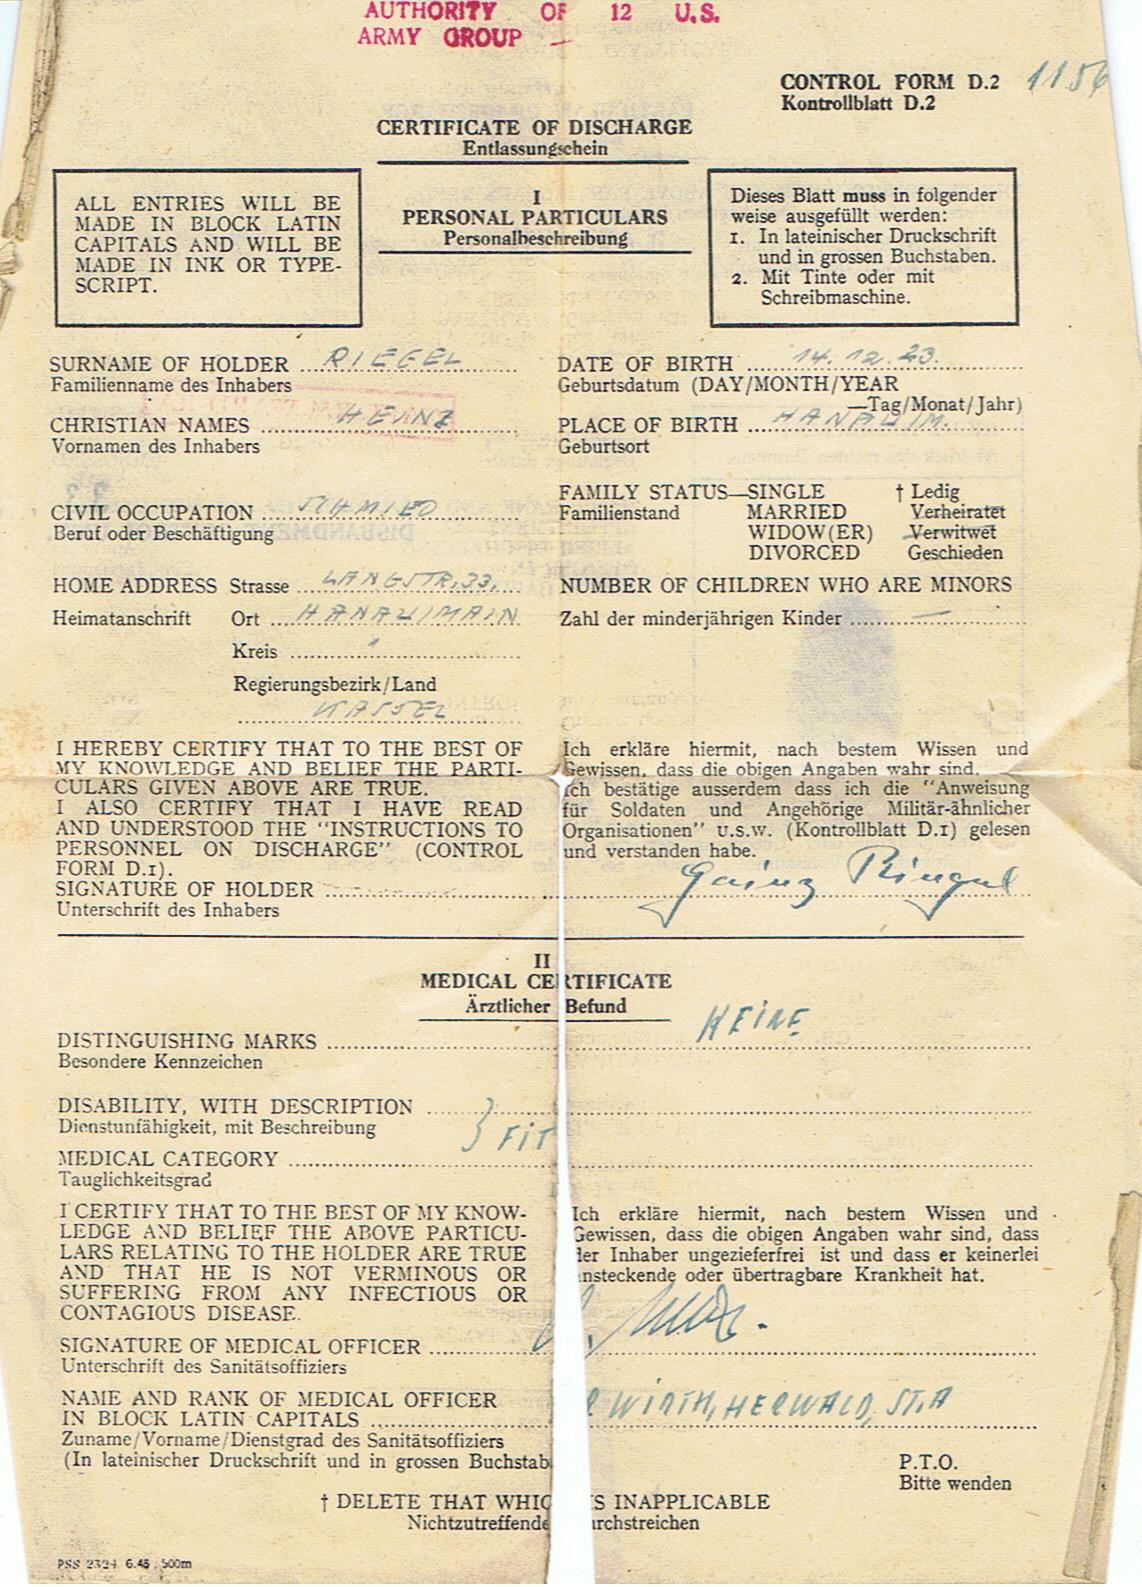 AUTHORITY OF 12 U.S.
ARMY GROUP —
CONTROL FORM D.2 1156
Kontrollblatt D.2
CERTIFICATE OF DISCHARGE
Entlassungschein
ALL ENTRIES WILL BE
MADE IN BLOCK LATIN
CAPITALS AND WILL BE
MADE IN INK OR TYPE-
SCRIPT.
I
PERSONAL PARTICULARS
Personalbeschreibung
Dieses Blatt muss in folgender
weise ausgefüllt werden:
1. In lateinischer Druckschrift
und in grossen Buchstaben.
2. Mit Tinte oder mit
Schreibmaschine.
SURNAME OF HOLDER RIEGEL
Familienname des Inhabers
DATE OF BIRTH 14.12.23.
Geburtsdatum (DAY/MONTH/YEAR
—Tag/Monat/Jahr)
CHRISTIAN NAMES HEINZ
Vornamen des Inhabers
PLACE OF BIRTH HANAU/M.
Geburtsort
CIVIL OCCUPATION SCHMIED
Beruf oder Beschäftigung
FAMILY STATUS—SINGLE † Ledig
Familienstand MARRIED Verheiratet
WIDOW(ER) Verwitwet
DIVORCED Geschieden
HOME ADDRESS Strasse LANGSTR. 33.
Heimatanschrift Ort HANAU/MAIN
Kreis "
Regierungsbezirk/Land
KASSEL
NUMBER OF CHILDREN WHO ARE MINORS
Zahl der minderjährigen Kinder —
I HEREBY CERTIFY THAT TO THE BEST OF
MY KNOWLEDGE AND BELIEF THE PARTI-
CULARS GIVEN ABOVE ARE TRUE.
I ALSO CERTIFY THAT I HAVE READ
AND UNDERSTOOD THE "INSTRUCTIONS TO
PERSONNEL ON DISCHARGE" (CONTROL
FORM D.1).
SIGNATURE OF HOLDER
Unterschrift des Inhabers
Ich erkläre hiermit, nach bestem Wissen und
Gewissen, dass die obigen Angaben wahr sind.
Ich bestätige ausserdem dass ich die "Anweisung
für Soldaten und Angehörige Militär-ähnlicher
Organisationen" U.S.W. (Kontrollblatt D.1) gelesen
und verstanden habe.
Heinz Riegel
II
MEDICAL CERTIFICATE
Ärztlicher Befund
DISTINGUISHING MARKS KEINE
Besondere Kennzeichen
DISABILITY, WITH DESCRIPTION
Dienstunfähigkeit, mit Beschreibung
} FIT
MEDICAL CATEGORY
Tauglichkeitsgrad
I CERTIFY THAT TO THE BEST OF MY KNOW-
LEDGE AND BELIEF THE ABOVE PARTICU-
LARS RELATING TO THE HOLDER ARE TRUE
AND THAT HE IS NOT VERMINOUS OR
SUFFERING FROM ANY INFECTIOUS OR
CONTAGIOUS DISEASE.
Ich erkläre hiermit, nach bestem Wissen und
Gewissen, dass die obigen Angaben wahr sind, dass
der Inhaber ungezieferfrei ist und dass er keinerlei
ansteckende oder übertragbare Krankheit hat.
SIGNATURE OF MEDICAL OFFICER
Unterschrift des Sanitätsoffiziers
NAME AND RANK OF MEDICAL OFFICER
IN BLOCK LATIN CAPITALS WIRTH, HERWALD, ST.A
Zuname/Vorname/Dienstgrad des Sanitätsoffiziers
(In lateinischer Druckschrift und in grossen Buchstab
P.T.O.
Bitte wenden
† DELETE THAT WHIC IS INAPPLICABLE
Nichtzutreffende urchstreichen
PSS 2324 6.45 500m